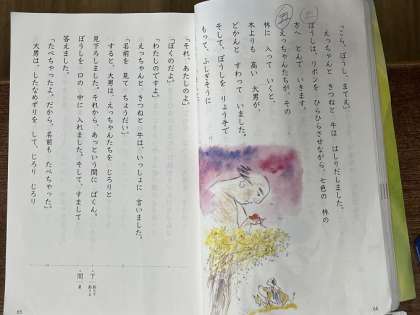 「こら、ぼうし、まてえ。」
えっちゃんと きつねと 牛は はしりだしました。
ぼうしは、リボンを ひらひらさせながら、七色の 林の
方へ とんで いきます。
えっちゃんたちが、その
林に 入って いくと、
木よりも 高い 大男が、
どかんと すわって いました。
そして、ぼうしを りょう手で
もって、ふしぎそうに
64
「それ、あたしのよ。」
「ぼくのだよ。」
「わたしのですよ。」
えっちゃんと きつねと 牛は、いっしょに 言いました。
「名前を 見て ちょうだい。」
すると、大男は、えっちゃんたちを じろりと
見下ろしました。それから、あっという間に ぱくん。
ぼうしを 口の 中に 入れました。そして、すまして
答えました。
「たべちゃったよ。だから、名前も たべちゃった。」
大男は、したなめずりを して、じろり じろり
下
間
65